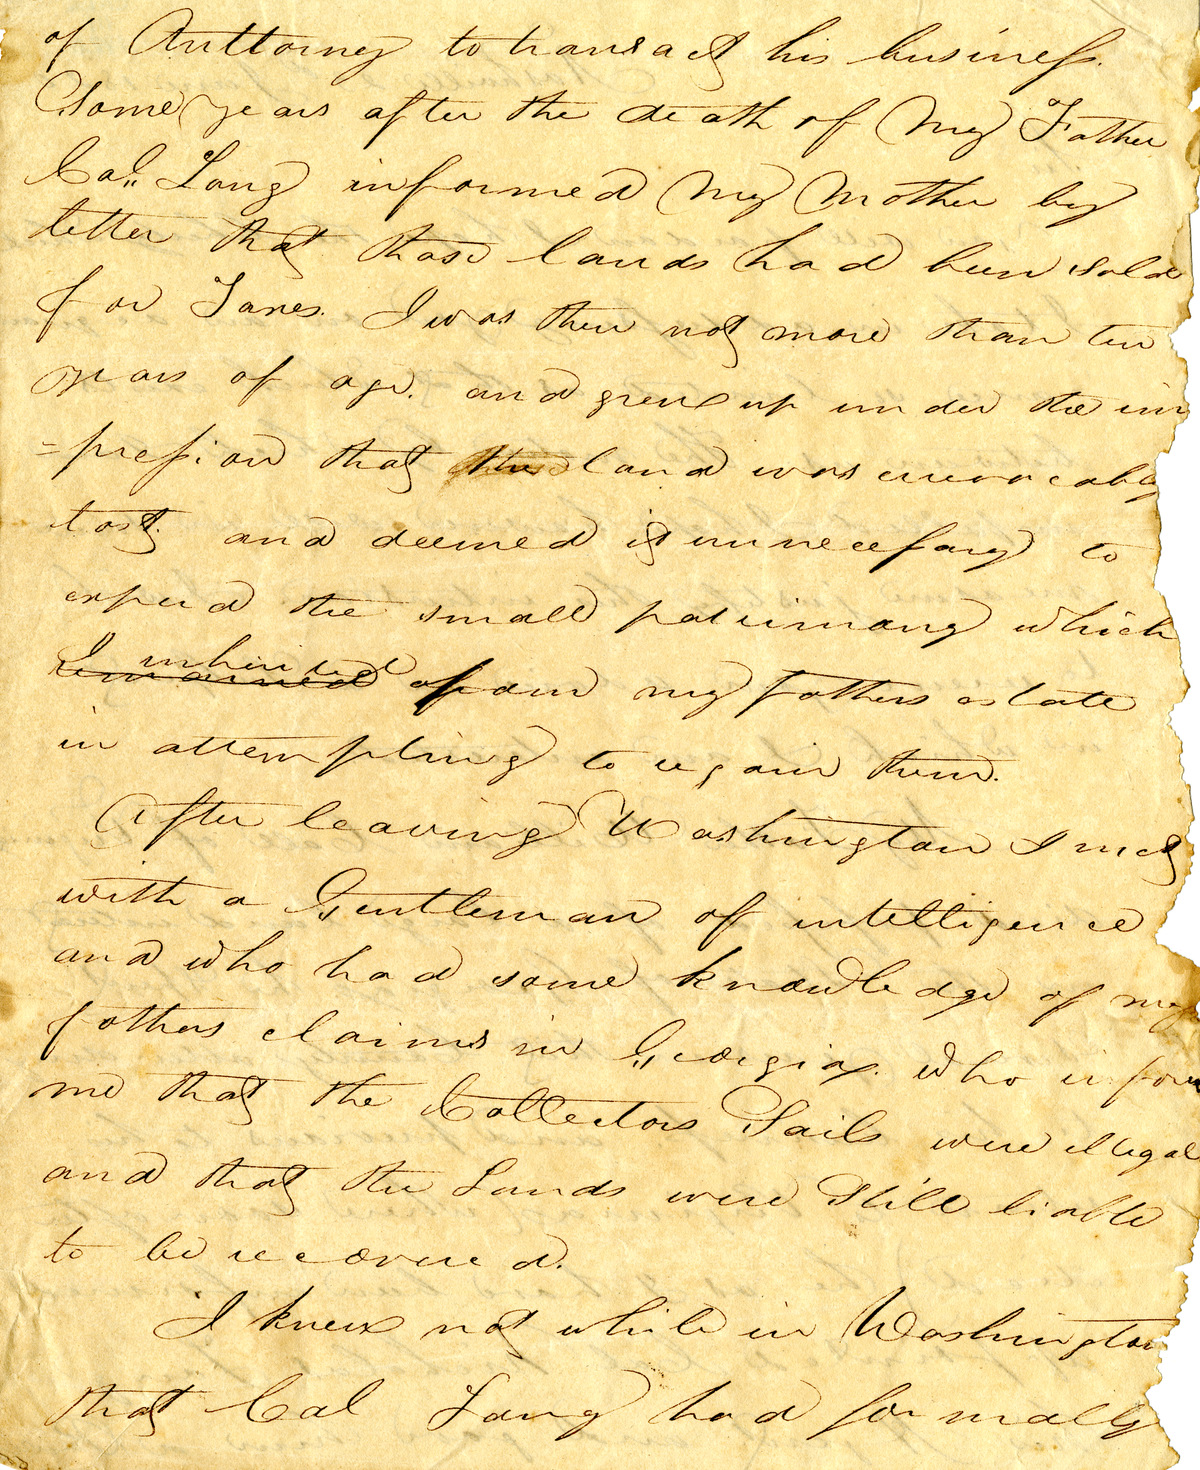 of Anttorney to transact his business.
Some years after the death of My Father
Col. Lang informed My Mother by
letter that those lands had been sold
for Taxes. I was then not more than ten
years of age. and grew up under the im
=pression that the land was irrevocably
lost. and deemed it unnecessary to
expend the small patrimony which
I inherited
from my fathers estate
in attempting to regain them.
After leaving Washington I met
with a Gentleman of intelligence
and who had some knowledge of my
fathers claims in Georgia. who inform
me that the Collectors Sails were illegal
and that the Lands were still liable
to be recovered.
I knew not while in Washington
that Col Lang had formally